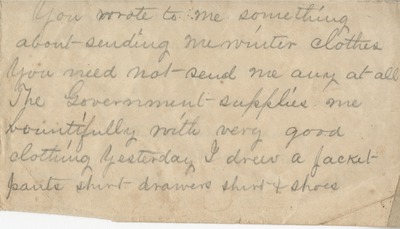 You wrote to me something
about sending me winter clothes
You need not send me any at all
The Government supplies me
bountifully with very good
clothing Yesterday I drew a jacket
pants shirt drawers shirt & shoes